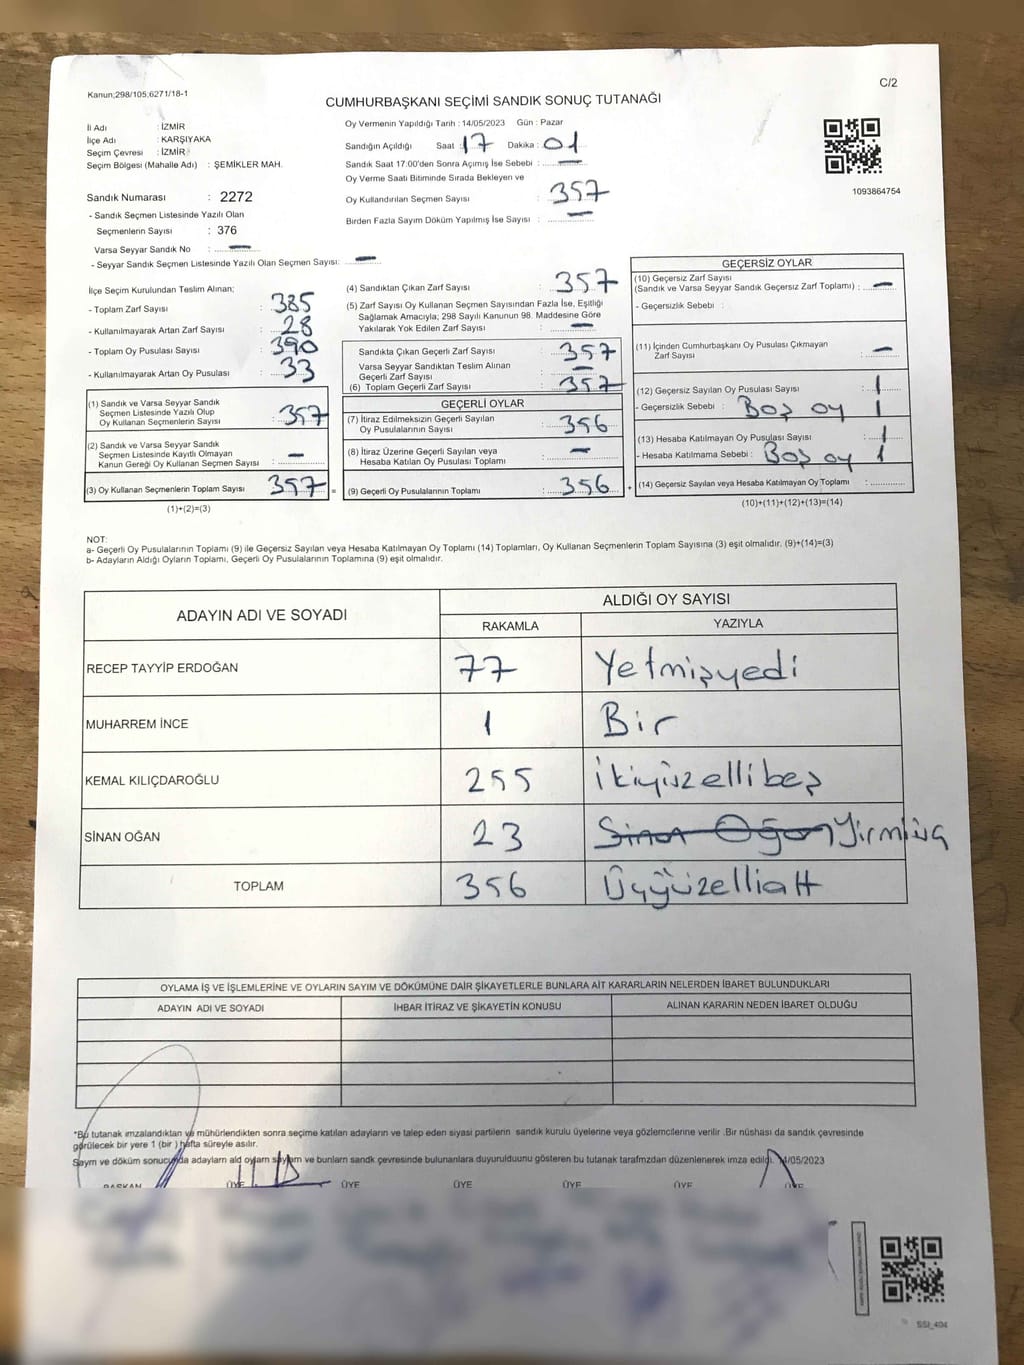 Kanun;298/105;6271/18-1
C/2
CUMHURBAŞKANI SEÇİMİ SANDIK SONUÇ TUTANAĞI
İl Adı : İZMİR
İlçe Adı : KARŞIYAKA
Seçim Çevresi : İZMİR
Seçim Bölgesi (Mahalle Adı) : ŞEMİKLER MAH.
Sandık Numarası : 2272
- Sandık Seçmen Listesinde Yazılı Olan
Seçmenlerin Sayısı : 376
Varsa Seyyar Sandık No : —
- Seyyar Sandık Seçmen Listesinde Yazılı Olan Seçmen Sayısı: —
Oy Vermenin Yapıldığı Tarih : 14/05/2023 Gün : Pazar
Sandığın Açıldığı Saat : 17 Dakika : 01
Sandık Saat 17:00'den Sonra Açımış İse Sebebi : —
Oy Verme Saati Bitiminde Sırada Bekleyen ve
Oy Kullandırılan Seçmen Sayısı : 357
Birden Fazla Sayım Döküm Yapılmış İse Sayısı : —
1093864754
İlçe Seçim Kurulundan Teslim Alınan;
- Toplam Zarf Sayısı : 385
- Kullanılmayarak Artan Zarf Sayısı : 28
- Toplam Oy Pusulası Sayısı : 390
- Kullanılmayarak Artan Oy Pusulası : 33
(1) Sandık ve Varsa Seyyar Sandık
Seçmen Listesinde Yazılı Olup
Oy Kullanan Seçmenlerin Sayısı : 357
(2) Sandık ve Varsa Seyyar Sandık
Seçmen Listesinde Kayıtlı Olmayan
Kanun Gereği Oy Kullanan Seçmen Sayısı : —
(3) Oy Kullanan Seçmenlerin Toplam Sayısı 357 =
(1)+(2)=(3)
(4) Sandıktan Çıkan Zarf Sayısı : 357
(5) Zarf Sayısı Oy Kullanan Seçmen Sayısından Fazla İse, Eşitliği
Sağlamak Amacıyla; 298 Sayılı Kanunun 98. Maddesine Göre
Yakılarak Yok Edilen Zarf Sayısı : —
Sandıkta Çıkan Geçerli Zarf Sayısı : 357
Varsa Seyyar Sandıktan Teslim Alınan
Geçerli Zarf Sayısı : —
(6) Toplam Geçerli Zarf Sayısı : 357
GEÇERLİ OYLAR
(7) İtiraz Edilmeksizin Geçerli Sayılan
Oy Pusulalarının Sayısı : 356
(8) İtiraz Üzerine Geçerli Sayılan veya
Hesaba Katılan Oy Pusulası Toplamı : —
(9) Geçerli Oy Pusulalarının Toplamı : 356 +
GEÇERSİZ OYLAR
(10) Geçersiz Zarf Sayısı
(Sandık ve Varsa Seyyar Sandık Geçersiz Zarf Toplamı) : —
- Geçersizlik Sebebi :
(11) İçinden Cumhurbaşkanı Oy Pusulası Çıkmayan
Zarf Sayısı : —
(12) Geçersiz Sayılan Oy Pusulası Sayısı : 1
- Geçersizlik Sebebi : Boş oy 1
(13) Hesaba Katılmayan Oy Pusulası Sayısı : 1
- Hesaba Katılmama Sebebi : Boş oy 1
(14) Geçersiz Sayılan veya Hesaba Katılmayan Oy Toplamı :
(10)+(11)+(12)+(13)=(14)
NOT:
a- Geçerli Oy Pusulalarının Toplamı (9) ile Geçersiz Sayılan veya Hesaba Katılmayan Oy Toplamı (14) Toplamları, Oy Kullanan Seçmenlerin Toplam Sayısına (3) eşit olmalıdır. (9)+(14)=(3)
b- Adayların Aldığı Oyların Toplamı, Geçerli Oy Pusulalarının Toplamına (9) eşit olmalıdır.
ADAYIN ADI VE SOYADI
ALDIĞI OY SAYISI
RAKAMLA YAZIYLA
RECEP TAYYİP ERDOĞAN 77 Yetmişyedi
MUHARREM İNCE 1 Bir
KEMAL KILIÇDAROĞLU 255 İkiyüzellibeş
SİNAN OĞAN 23 Sinan Oğan Yirmiüç
TOPLAM 356 Üçyüzellialtı
OYLAMA İŞ VE İŞLEMLERİNE VE OYLARIN SAYIM VE DÖKÜMÜNE DAİR ŞİKAYETLERLE BUNLARA AİT KARARLARIN NELERDEN İBARET BULUNDUKLARI
ADAYIN ADI VE SOYADI İHBAR İTİRAZ VE ŞİKAYETİN KONUSU ALINAN KARARIN NEDEN İBARET OLDUĞU
*Bu tutanak imzalandıktan ve mühürlendikten sonra seçime katılan adayların ve talep eden siyasi partilerin sandık kurulu üyelerine veya gözlemcilerine verilir .Bir nüshası da sandık çevresinde
görülecek bir yere 1 (bir ) hafta süreyle asılır.
Sayım ve döküm sonucunda adayların ald oyların sayım ve bunların sandk çevresinde bulunanlara duyurulduunu gösteren bu tutanak tarafmzdan düzenlenerek imza edildi. 14/05/2023
BAŞKAN ÜYE ÜYE ÜYE ÜYE ÜYE ÜYE
SSI_404